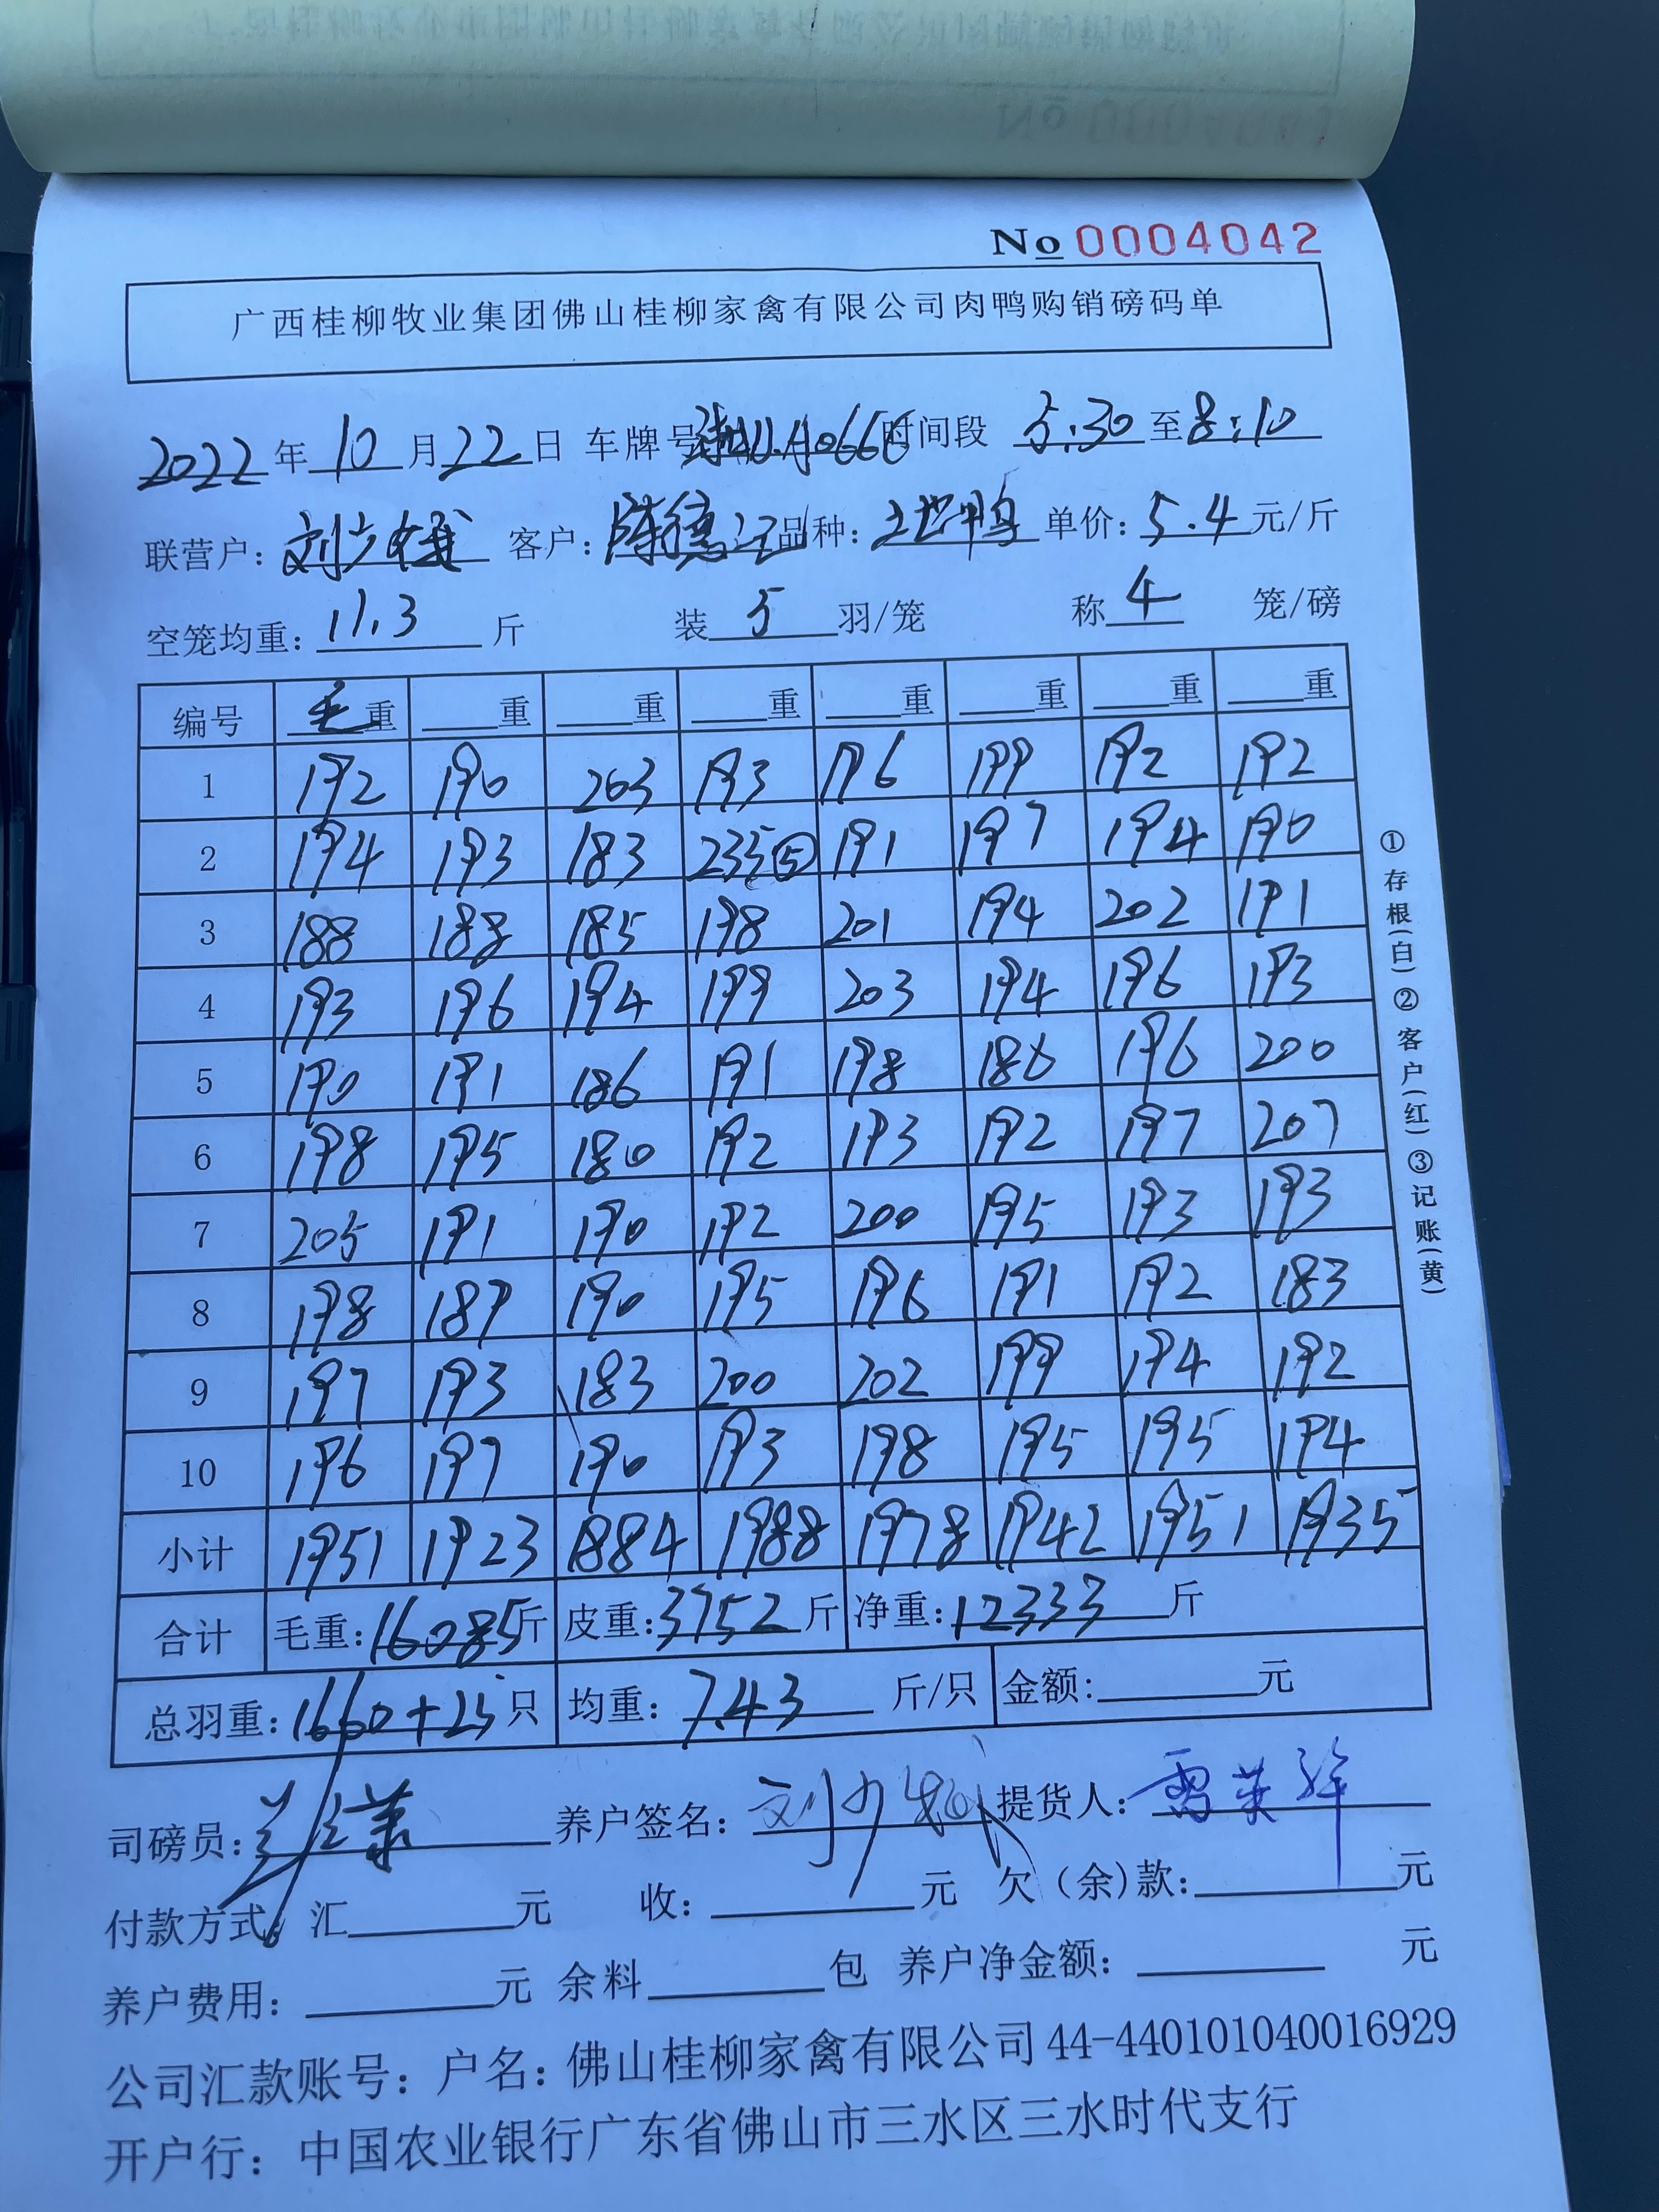 No 0004042
广西桂柳牧业集团佛山桂柳家禽有限公司肉鸭购销磅码单
2022 年 10 月 22 日 车牌号 时间段 5:30 至 8:10
联营户: 客户: 陈德江 品种: 土地鸭 单价: 5.4 元/斤
空笼均重: 11.3 斤 装 5 羽/笼 称 4 笼/磅
编号 毛重 重 重 重 重 重 重 重
1 192 190 203 193 196 199 192 192
2 194 193 183 235⑤ 191 197 194 190
3 188 188 185 198 201 194 202 191
4 193 196 194 199 203 194 196 193
5 190 191 186 191 198 186 196 200
6 198 195 180 192 193 192 197 207
7 205 191 190 192 200 195 193 193
8 198 189 190 195 196 191 192 183
9 197 193 183 200 202 199 194 192
10 196 197 190 193 198 195 195 194
小计 1951 1923 1884 1988 1978 1942 1951 1935
合计 毛重: 16085 斤 皮重: 3752 斤 净重: 12333 斤
总羽重: 1660+25 只 均重: 7.43 斤/只 金额: 元
司磅员: 养户签名: 提货人:
付款方式: 汇 元 收: 元 欠(余)款: 元
养户费用: 元 余料 包 养户净金额: 元
公司汇款账号: 户名: 佛山桂柳家禽有限公司 44-440101040016929
开户行: 中国农业银行广东省佛山市三水区三水时代支行
①存根(白)②客户(红)③记账(黄)